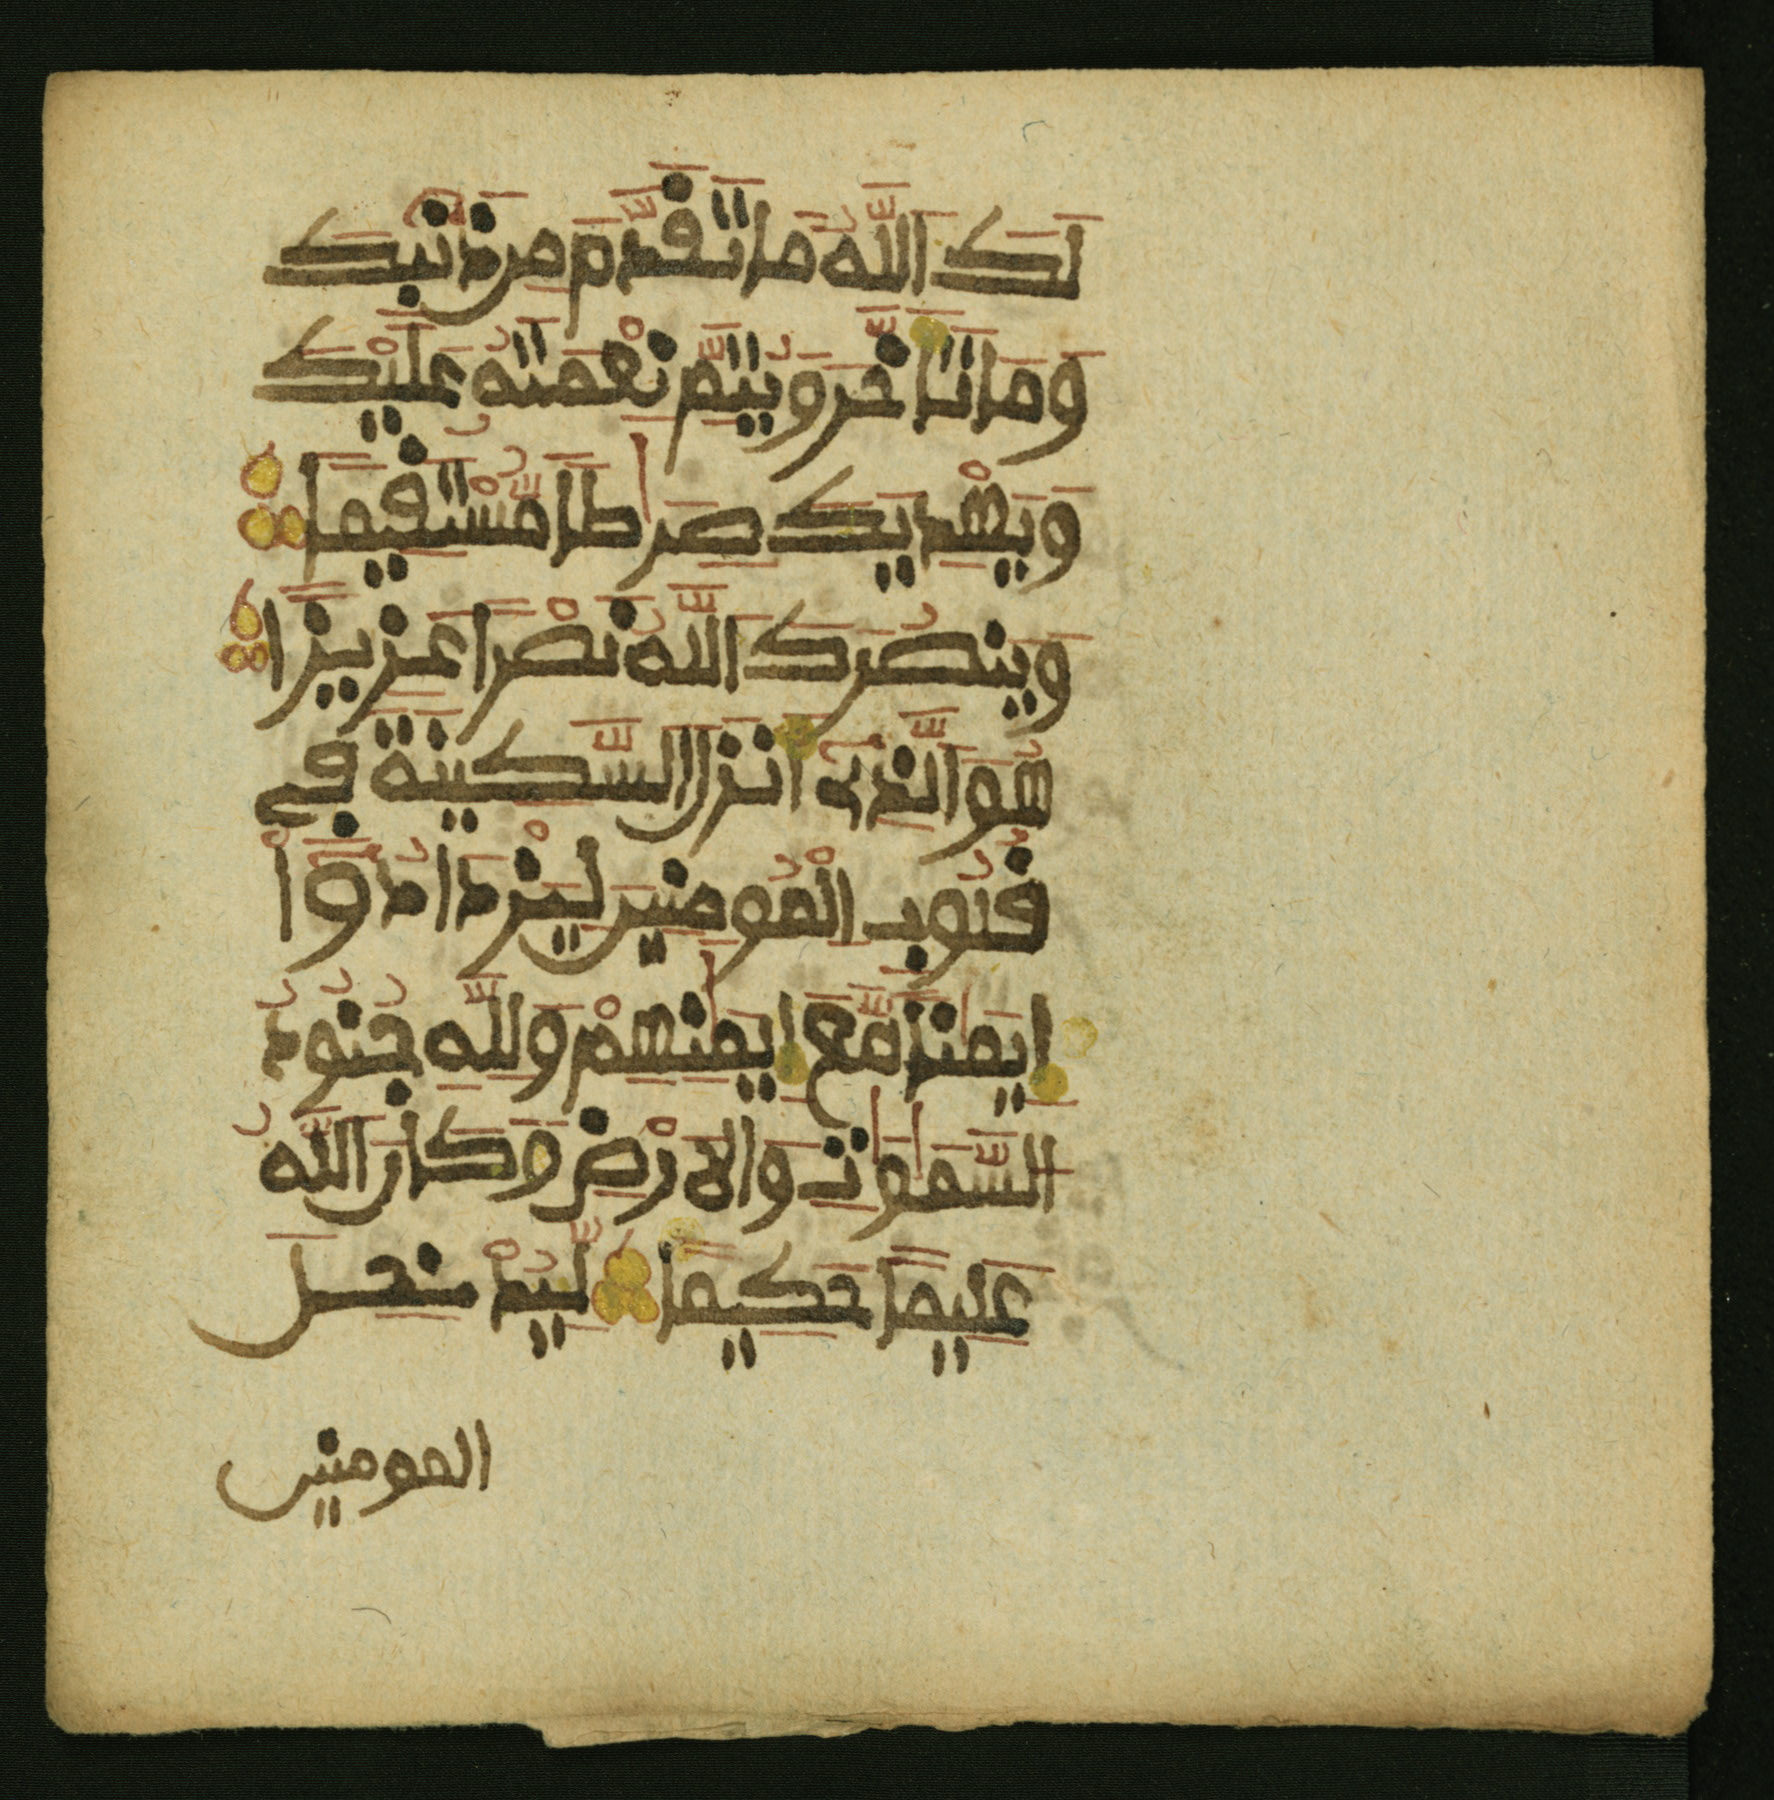 لَكَ اَللَّهُ مَا تَقَدَّمَ مِن ذَنۢبِكَ
وَمَا تَأَخَّرَ وَيُتِمَّ نِعْمَتَهُۥ عَلَيْكَ
وَيَهْدِيَكَ صِرَٰطاً مُّسْتَقِيماً
وَيَنصُرَكَ اَللَّهُ نَصْراً عَزِيزاً
هُوَ اَلَّذِىٓ أَنزَلَ اَلسَّكِينَةَ فِے
قُلُوبِ اِلْمُومِنِينَ لِيَزْدَادُوٓاْ
إِيمَٰناً مَّعَ إِيمَٰنِهِمْ وَلِلَّهِ جُنُودُ
اُلسَّمَٰوَٰتِ وَالَارْضِ وَكَانَ اَللَّهُ
عَلِيماً حَكِيماً لِّيُدْخِلَ
المومنين